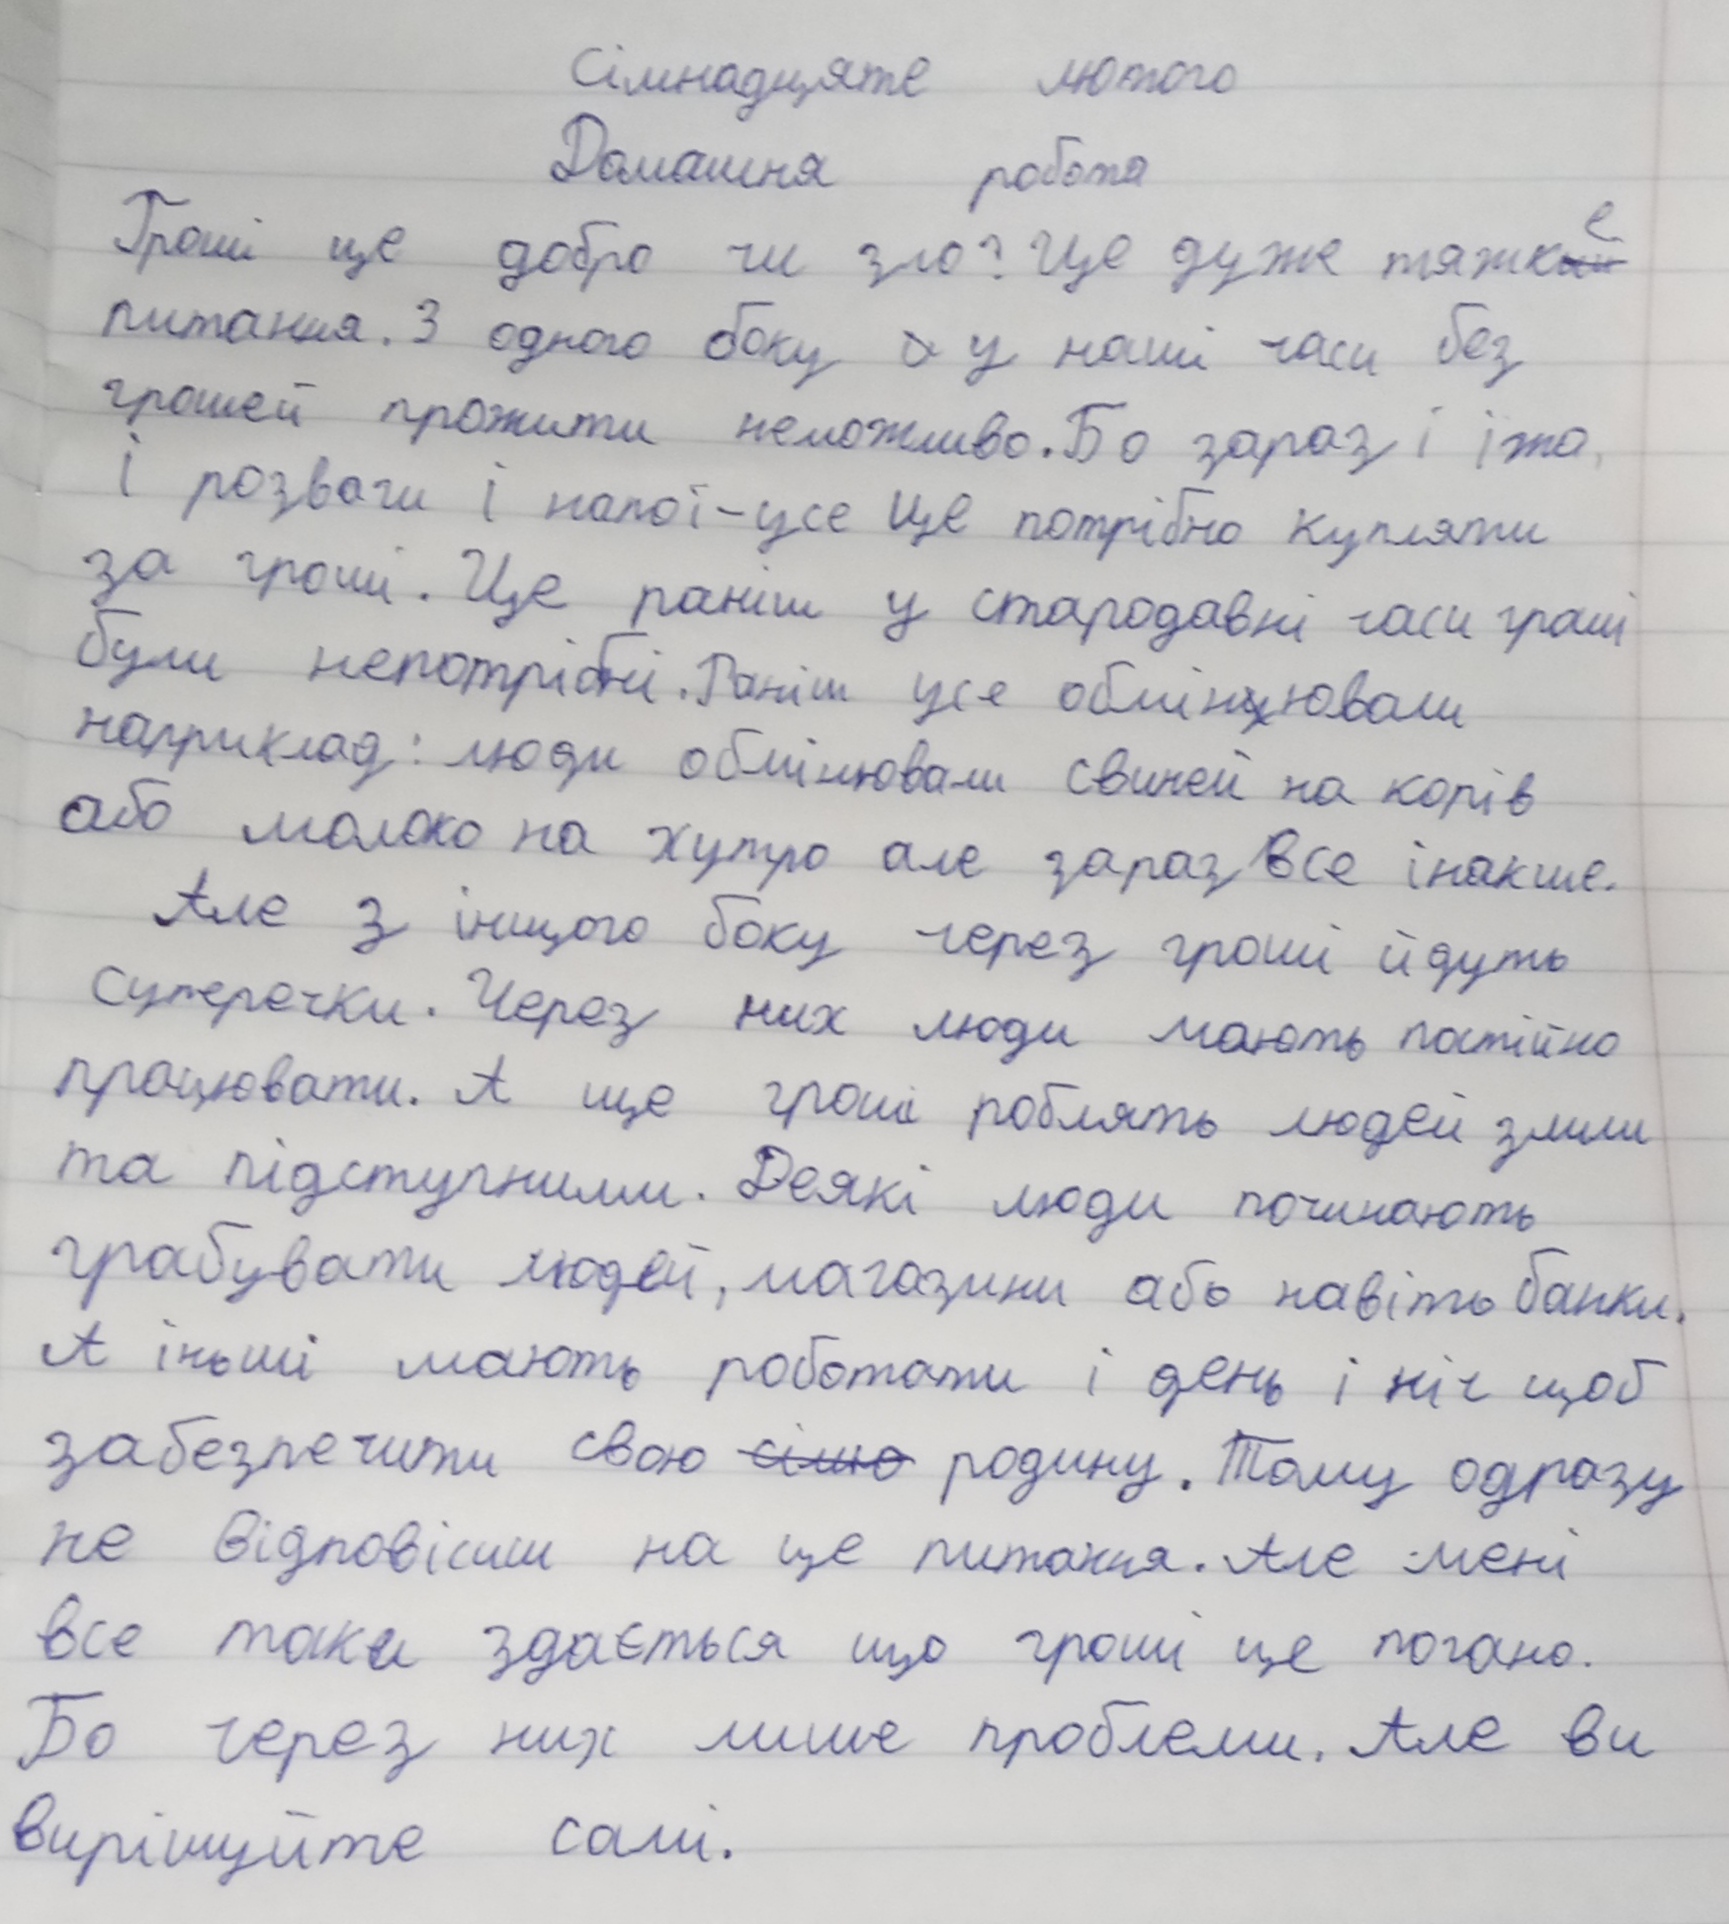 Сімнадцяте лютого
Домашня робота
Гроші це добро чи зло? Це дуже тяжке
питання. З одного боку у наші часи без
грошей прожити неможливо. Бо зараз і їжа,
і розваги і напої-усе це потрібно купляти
за гроші. Це раніш у стародавні часи гроші
були непотрібні. Раніш усе обмінювали
наприклад: люди обмінювали свиней на корів
або молоко на хутро але зараз все інакше.
Але з іншого боку через гроші йдуть
суперечки. Через них люди мають постійно
працювати. А ще гроші роблять людей злими
та підступними. Деякі люди починають
грабувати людей, магазини або навіть банки.
А іньші мають работати і день і ніч щоб
забезпечити свою сімю родину. Тому одразу
не відповісиш на це питання. Але мені
все таки здається що гроші це погано.
Бо через них лише проблеми. Але ви
вирішуйте самі.